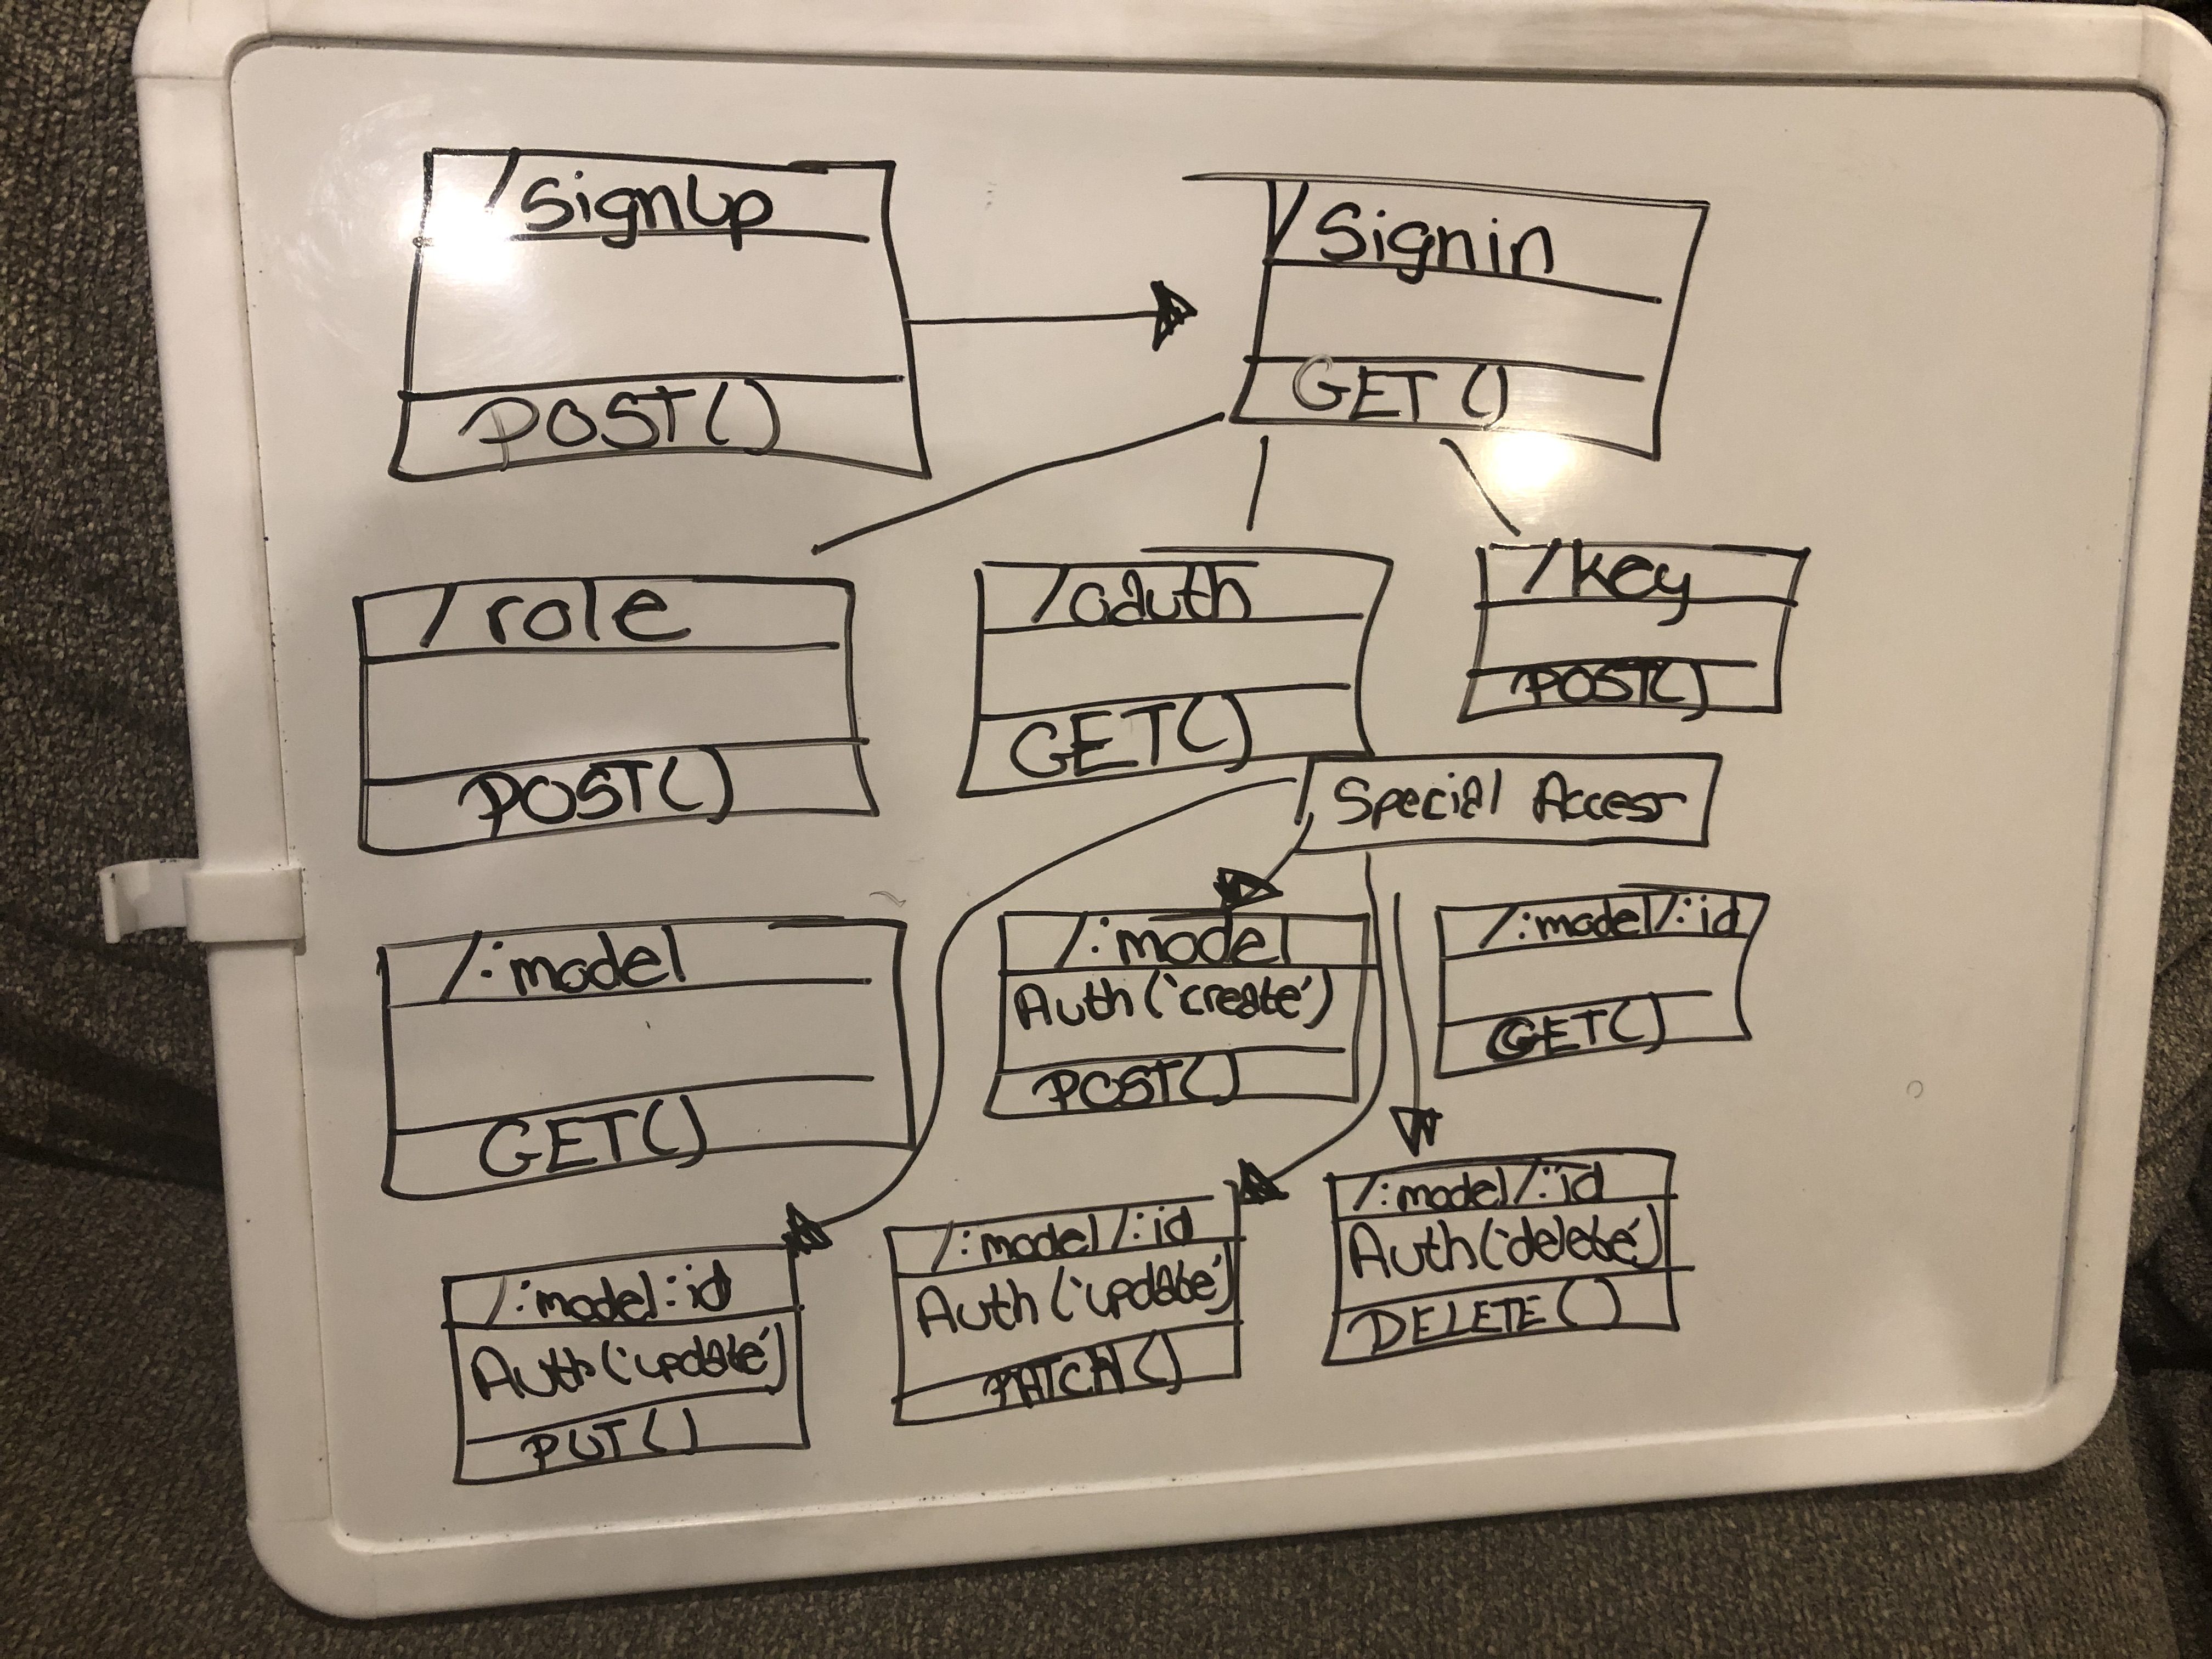 /SignUp
POST()
/Signin
GET()
/role
POST()
/oauth
GET()
/key
POST()
Special Access
/:model
GET()
/:model
Auth('create')
POST()
/:model/:id
GET()
/:model:id
Auth('update')
PUT()
/:model/:id
Auth('update')
PATCH()
/:model/:id
Auth('delete')
DELETE()